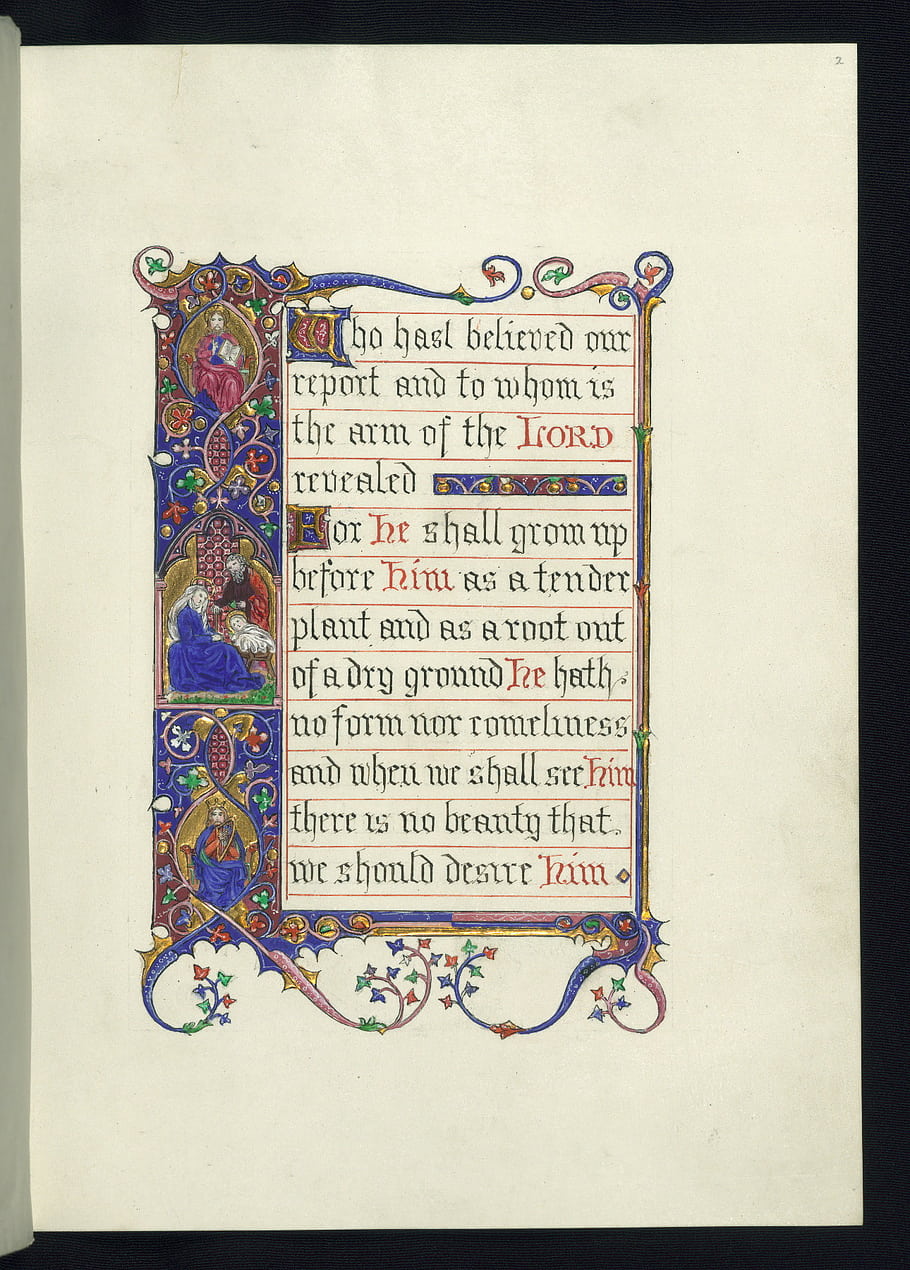 2
Who hast believed our
report and to whom is
the arm of the LORD
revealed
For he shall grow up
before him as a tender
plant and as a root out
of a dry ground he hath
no form nor comeliness
and when we shall see him
there is no beauty that
we should desire him